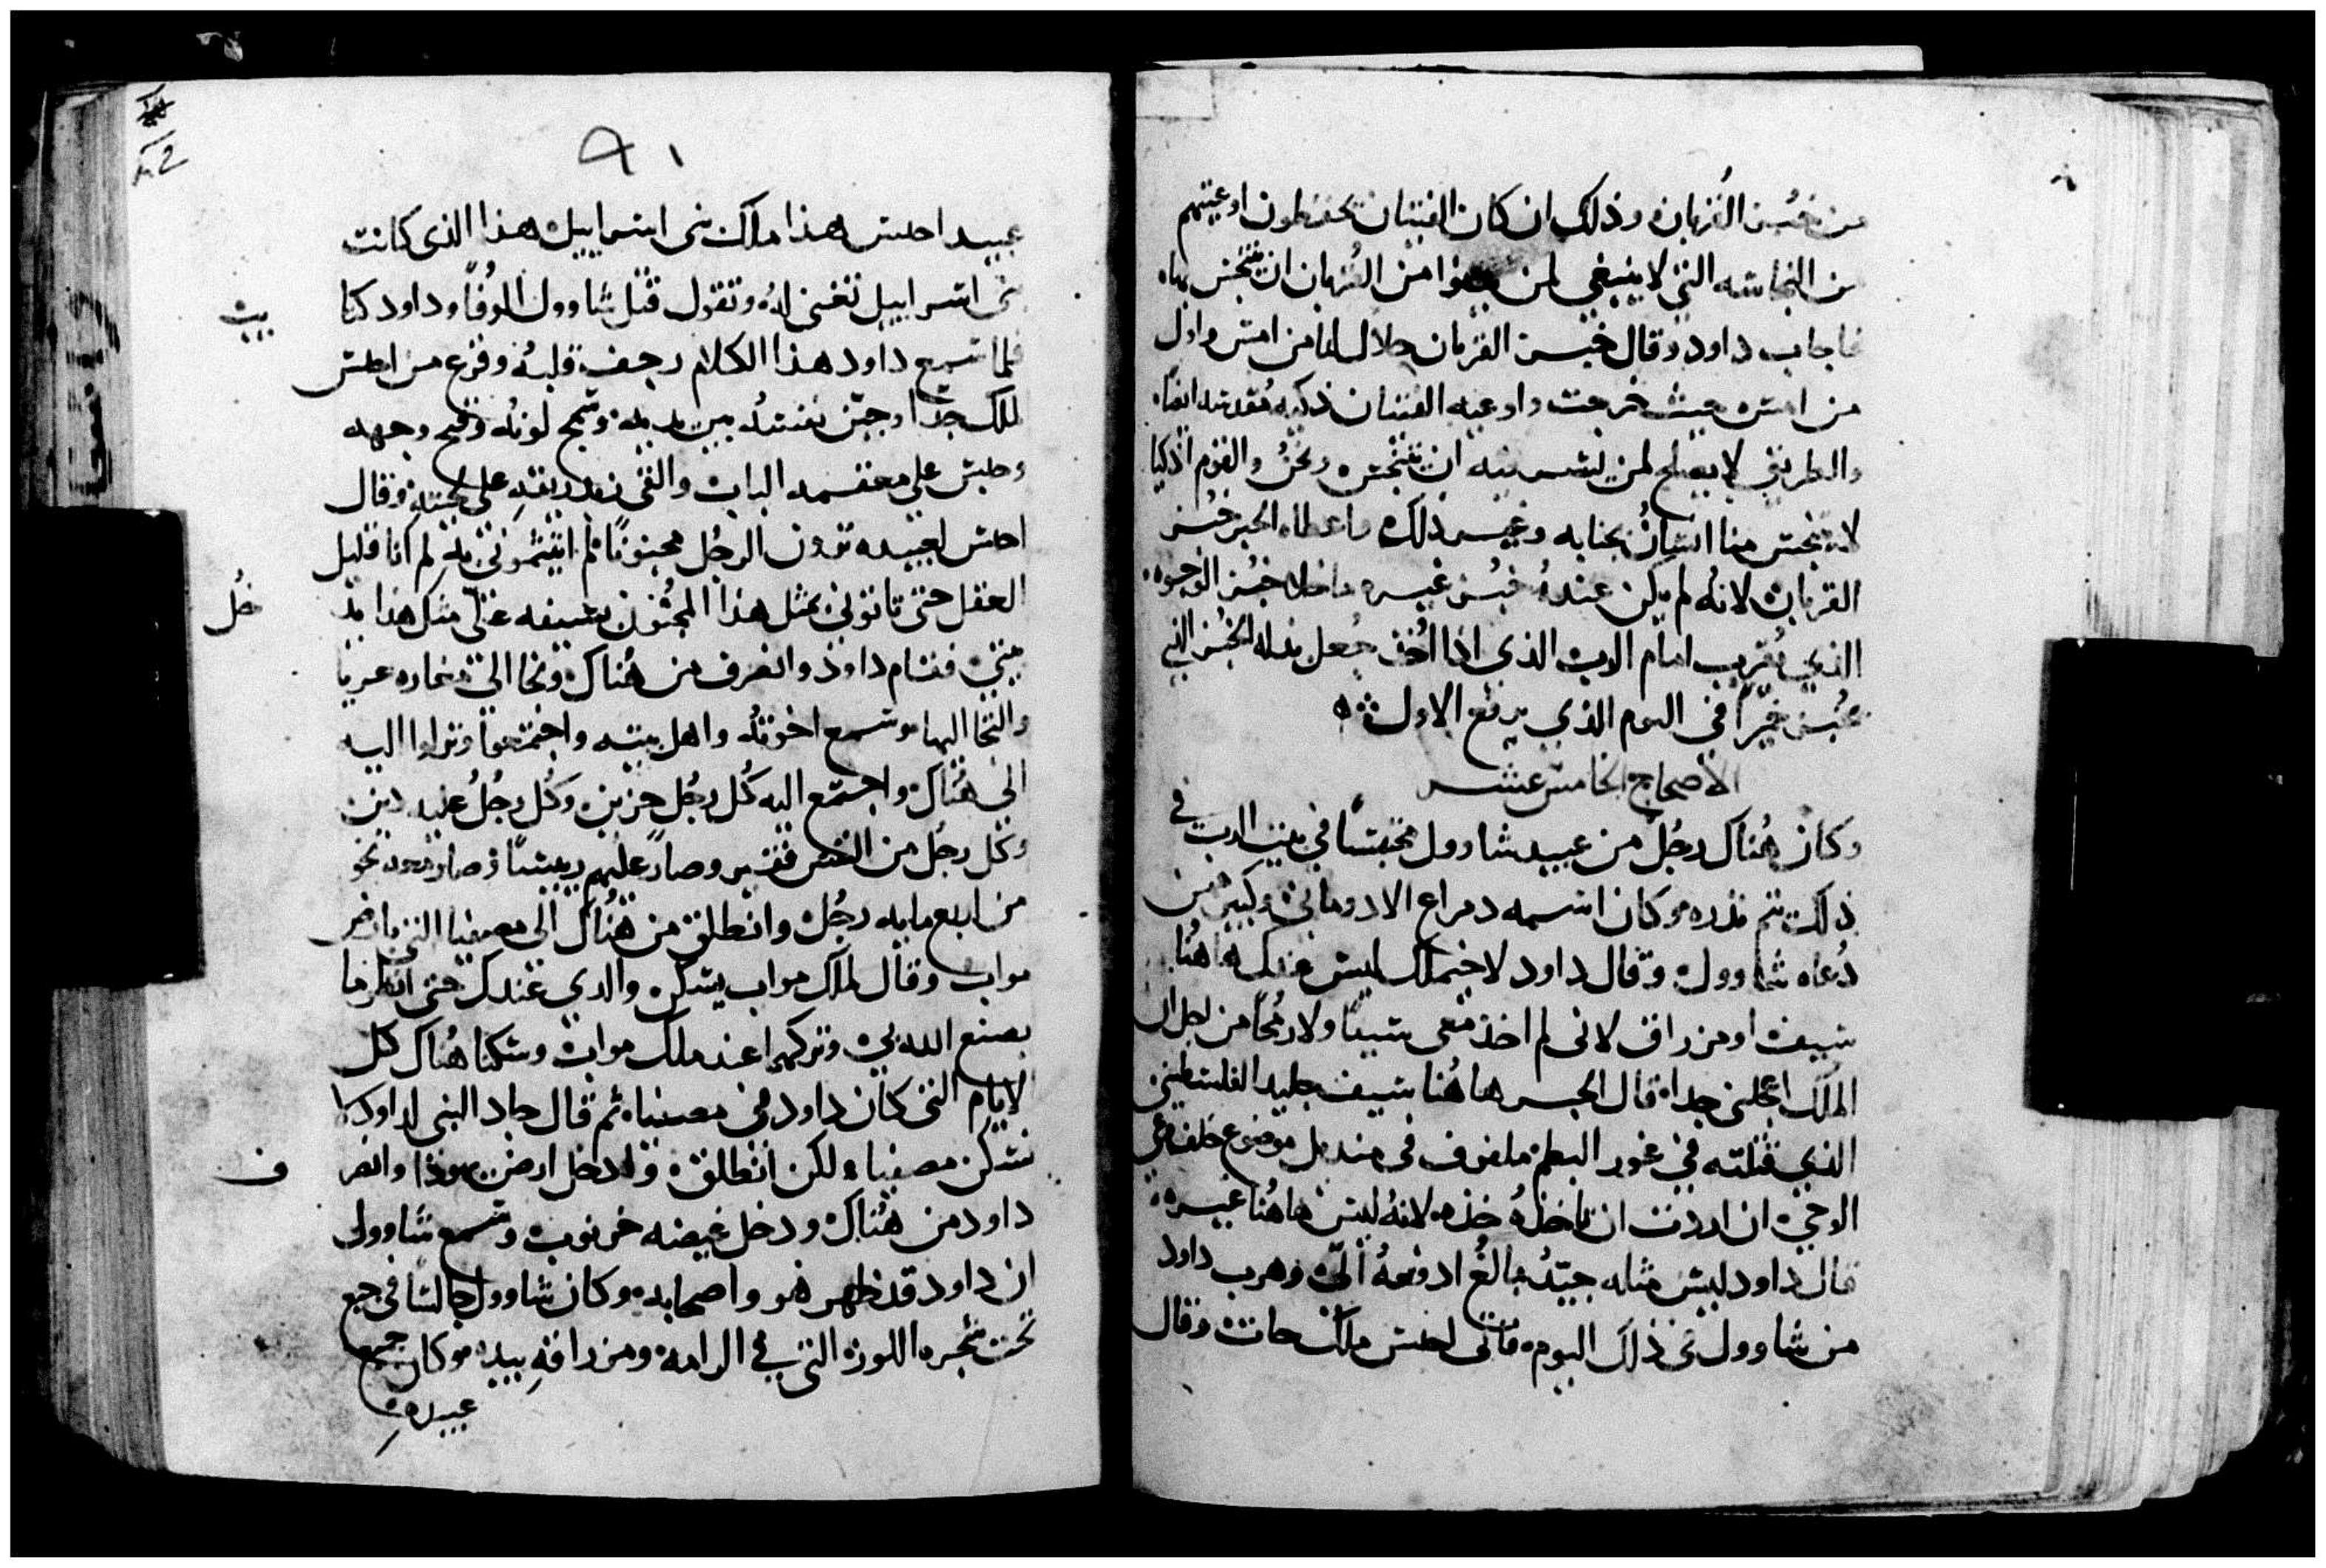 من خبز القربان وذلك ان كان الفتيان يحفظون اوعيتهم
من النجاسه التي لا ينبغي لمن من القربان ان يتنجس بها
فاجاب داود وقال خبز القربان حلال لنا من امس واول
من امس حيث خرجت واوعيه الفتيان ذكيه مقدسه ايضا
والطريق لا يصلح لمن يسير فيه ان يتنجس ونحن والقوم اذكيا
لا يتنجس منا انسان بجنابه وغير ذلك فاعطاه الحبر خبز
القربان لانه لم يكن عنده خبز غيره ماخلا خبز الوجوه
الذي يقرب امام الرب الذي اذا اخذ جعل بدله الخبز الذي
خبز في اليوم الذي يرفع الاول
الاصحاح الخامس عشر
وكان هناك رجل من عبيد شاوول محتبسا في بيت الرب في
ذلك تم نذره وكان اسمه دمراع الادوماني وكبير من
رعاه شاوول وقال داود لاخيملك ليس عندك هاهنا
سيف او مزراق لاني لم اخذ معي سيفا ولا رمحا من اجل ان
الملك اعجلني جدا قال الحبر هاهنا سيف جليد الفلسطيني
الذي قتلته في غور البطم ملفوف في منديل موضوع خلف
الوحي ان اردت ان تاخذه خذه لانه ليس هاهنا غيره
قال داود ليس مثله جيد بالغ ادفعه الي وهرب داود
من شاوول في ذلك اليوم فاتى احيس ملك حاث وقال
٩١
عبيد احيس هذا ملك بني اسراييل هذا الذي كانت
بني اسراييل تغني له وتقول قتل شاوول الوفا وداود كذا
بيت
فلما سمع داود هذا الكلام رجف قلبه وفزع من احيس
الملك جدا وجنن نفسه بين يديه وسمج لونه وقبح وجهه
وجلس على الباب والقى ريقه على لحيته وقال
احيس لعبيده ترون الرجل مجنونا لم اتيتموني به لم انا قليل
العقل حتى تاتوني بمثل هذا المجنون مثل هذا يدخل
بيتي فقام داود وانصرف من هناك ونجا الى مغاره
والتجا اليها وسمع اخوته واهل بيته واجتمعوا ونزلوا اليه
الى هناك واجتمع اليه كل رجل حزين وكل رجل عليه دين
وكل رجل من النفس فقير وصار عليهم رييسا وصار معه نحو
من اربع مايه رجل وانطلق من هناك الى مصفيا التي بارض
مواب وقال لملك مواب يسكن والدي عندك حتى انظر ما
يصنع الله بي وتركهما عند ملك مواب وسكنا هناك كل
الايام التي كان داود في مصفيا ثم قال جاد النبي لداود لا
تسكن مصفيا ولكن انطلق وادخل ارض يهوذا وانصر
ف
داود من هناك ودخل غيضه خرنوب وسمع شاوول
ان داود قد ظهر هو واصحابه وكان شاوول جالسا في جبع
تحت شجره اللوزه التي في الرامه ومزراقه بيده وكان جميع
عبيده